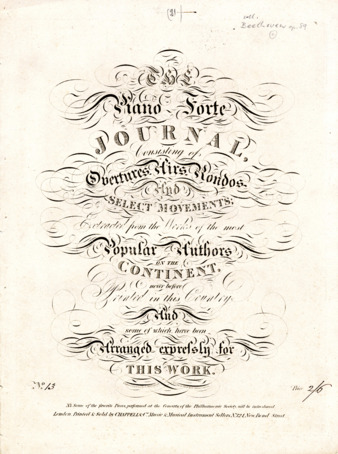 (21)
Beethoven op.
THE
Piano Forte
JOURNAL,
Consisting of
Overtures Airs Rondos
And
SELECT MOVEMENTS,
Extracted from the Works of the most
Popular Authors
ON THE
CONTINENT,
never before
Printed in this Country
And
some of which have been
Arranged expressly for
THIS WORK.
No. 13
Price 2/6
NB. Some of the favorite Pieces performed at the Concerts of the Philharmonic Society will be introduced
London Printed & Sold by CHAPPELL & Co. Music & Musical Instrument Sellers, No. 124, New Bond Street